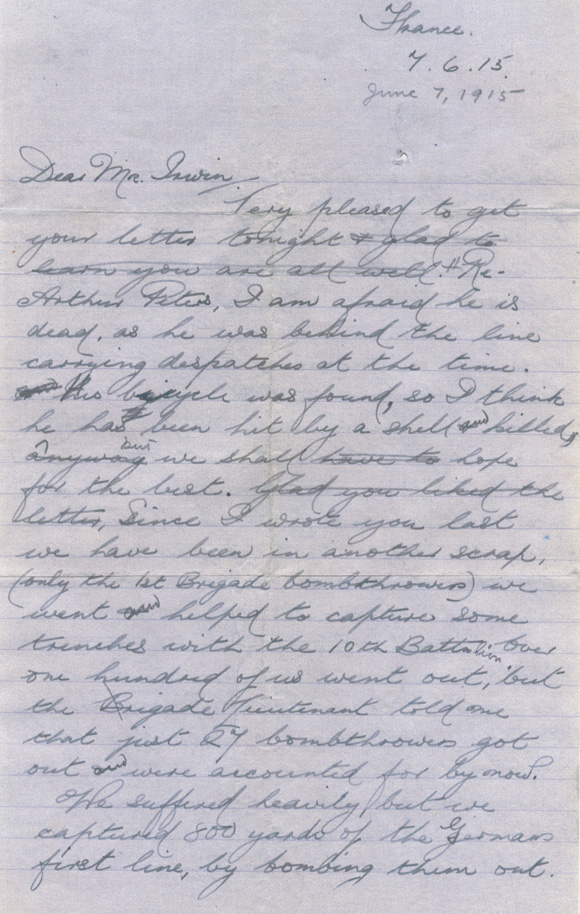 France.
7.6.15.
June 7, 1915
Dear Mr. Irwin
Very pleased to get
your letter tonight & glad to
learn you are all well. Re-
Arthur Peters, I am afraid he is
dead, as he was behind the line
carrying despatches at the time.
His bicycle was found, so I think
he has been hit by a shell and killed,
anyway but we shall have to hope
for the best. Glad you liked the
letter, Since I wrote you last
we have been in another scrap,
(only the 1st Brigade bombthrowers) we
went and helped to capture some
trenches with the 10th Battalion over
one hundred of us went out, but
the Brigade Lieutenant told me
that just 27 bombthrowers got
out and were accounted for by now.
We suffered heavily but we
captured 800 yards of the Germans
first line, by bombing them out.